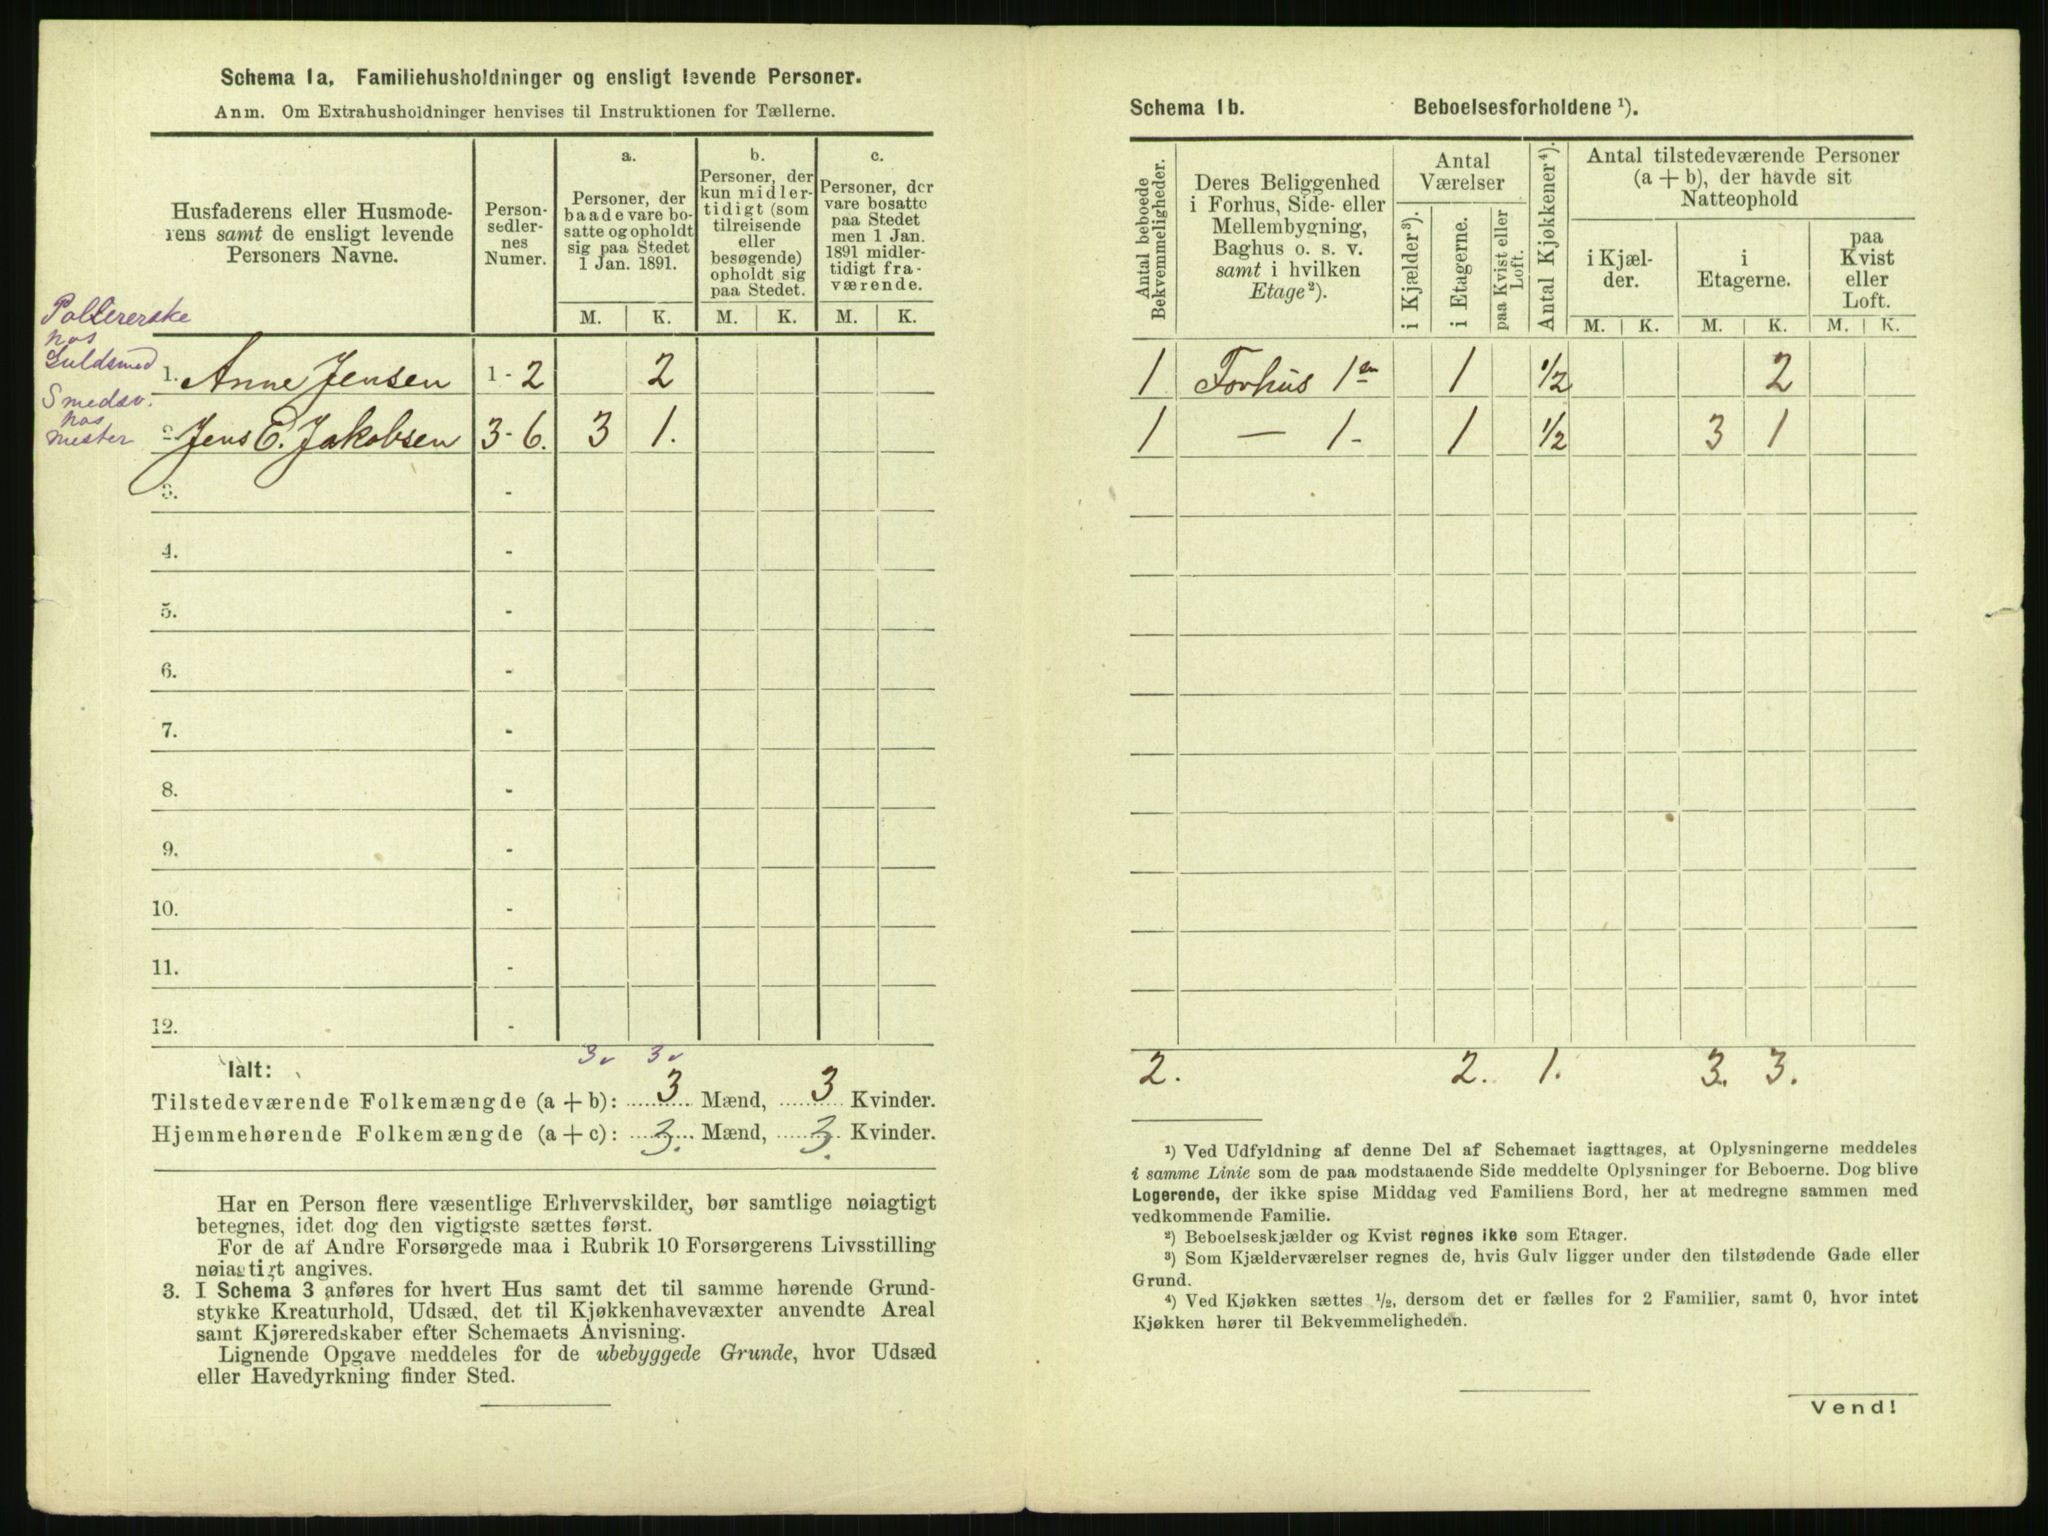 Schema 1a. Familiehusholdninger og ensligt levende Personer.
Anm. Om Extrahusholdninger henvises til Instruktionen for Tællerne.
Husfaderens eller Husmode-
rens samt de ensligt levende
Personers Navne.
Person-
sedler-
nes
Numer.
a.
Personer, der
baade vare bo-
satte og opholdt
sig paa Stedet
1 Jan. 1891.
b.
Personer, der
kun midler-
tidigt (som
tilreisende
eller
besøgende)
opholdt sig
paa Stedet.
c.
Personer, der
vare bosatte
paa Stedet
men 1 Jan.
1891 midler-
tidigt fra-
værende.
M. K. M. K. M. K.
Pollererske
hos
Guldsmed
1. Anne Jensen 1 - 2 2
Smedsv.
hos
mester
2. Jens E. Jakobsen 3 - 6. 3 1.
3. -
4. -
5. -
6. -
7. -
8. -
9. -
10. -
11. -
12. -
3 3
Ialt:
Tilstedeværende Folkemængde (a + b): 3 Mænd, 3 Kvinder.
Hjemmehørende Folkemængde (a + c): 3. Mænd, 3. Kvinder.
Har en Person flere væsentlige Erhvervskilder, bør samtlige nøiagtigt
betegnes, idet dog den vigtigste sættes først.
For de af Andre Forsørgede maa i Rubrik 10 Forsørgerens Livsstilling
nøiagtigt angives.
3. I Schema 3 anføres for hvert Hus samt det til samme hørende Grund-
stykke Kreaturhold, Udsæd, det til Kjøkkenhavevæxter anvendte Areal
samt Kjøreredskaber efter Schemaets Anvisning.
Lignende Opgave meddeles for de ubebyggede Grunde, hvor Udsæd
eller Havedyrkning finder Sted.
Schema 1b. Beboelsesforholdene ¹).
Antal beboede
Bekvemmeligheder.
Deres Beliggenhed
i Forhus, Side- eller
Mellembygning,
Baghus o. s. v.
samt i hvilken
Etage ²).
Antal
Værelser
i Kjælder ³).
i Etagerne.
paa Kvist eller
Loft.
Antal Kjøkkener ⁴).
Antal tilstedeværende Personer
(a + b), der havde sit
Natteophold
i Kjæl-
der.
i
Etagerne.
paa
Kvist
eller
Loft.
M. K. M. K. M. K.
1 Forhus 1en 1 1/2 2
1 — 1 - 1 1/2 3 1
2. 2. 1. 3. 3.
¹) Ved Udfyldning af denne Del af Schemaet iagttages, at Oplysningerne meddeles
i samme Linie som de paa modstaaende Side meddelte Oplysninger for Beboerne. Dog blive
Logerende, der ikke spise Middag ved Familiens Bord, her at medregne sammen med
vedkommende Familie.
²) Beboelseskjælder og Kvist regnes ikke som Etager.
³) Som Kjælderværelser regnes de, hvis Gulv ligger under den tilstødende Gade eller
Grund.
⁴) Ved Kjøkken sættes ½, dersom det er fælles for 2 Familier, samt 0, hvor intet
Kjøkken hører til Bekvemmeligheden.
Vend!